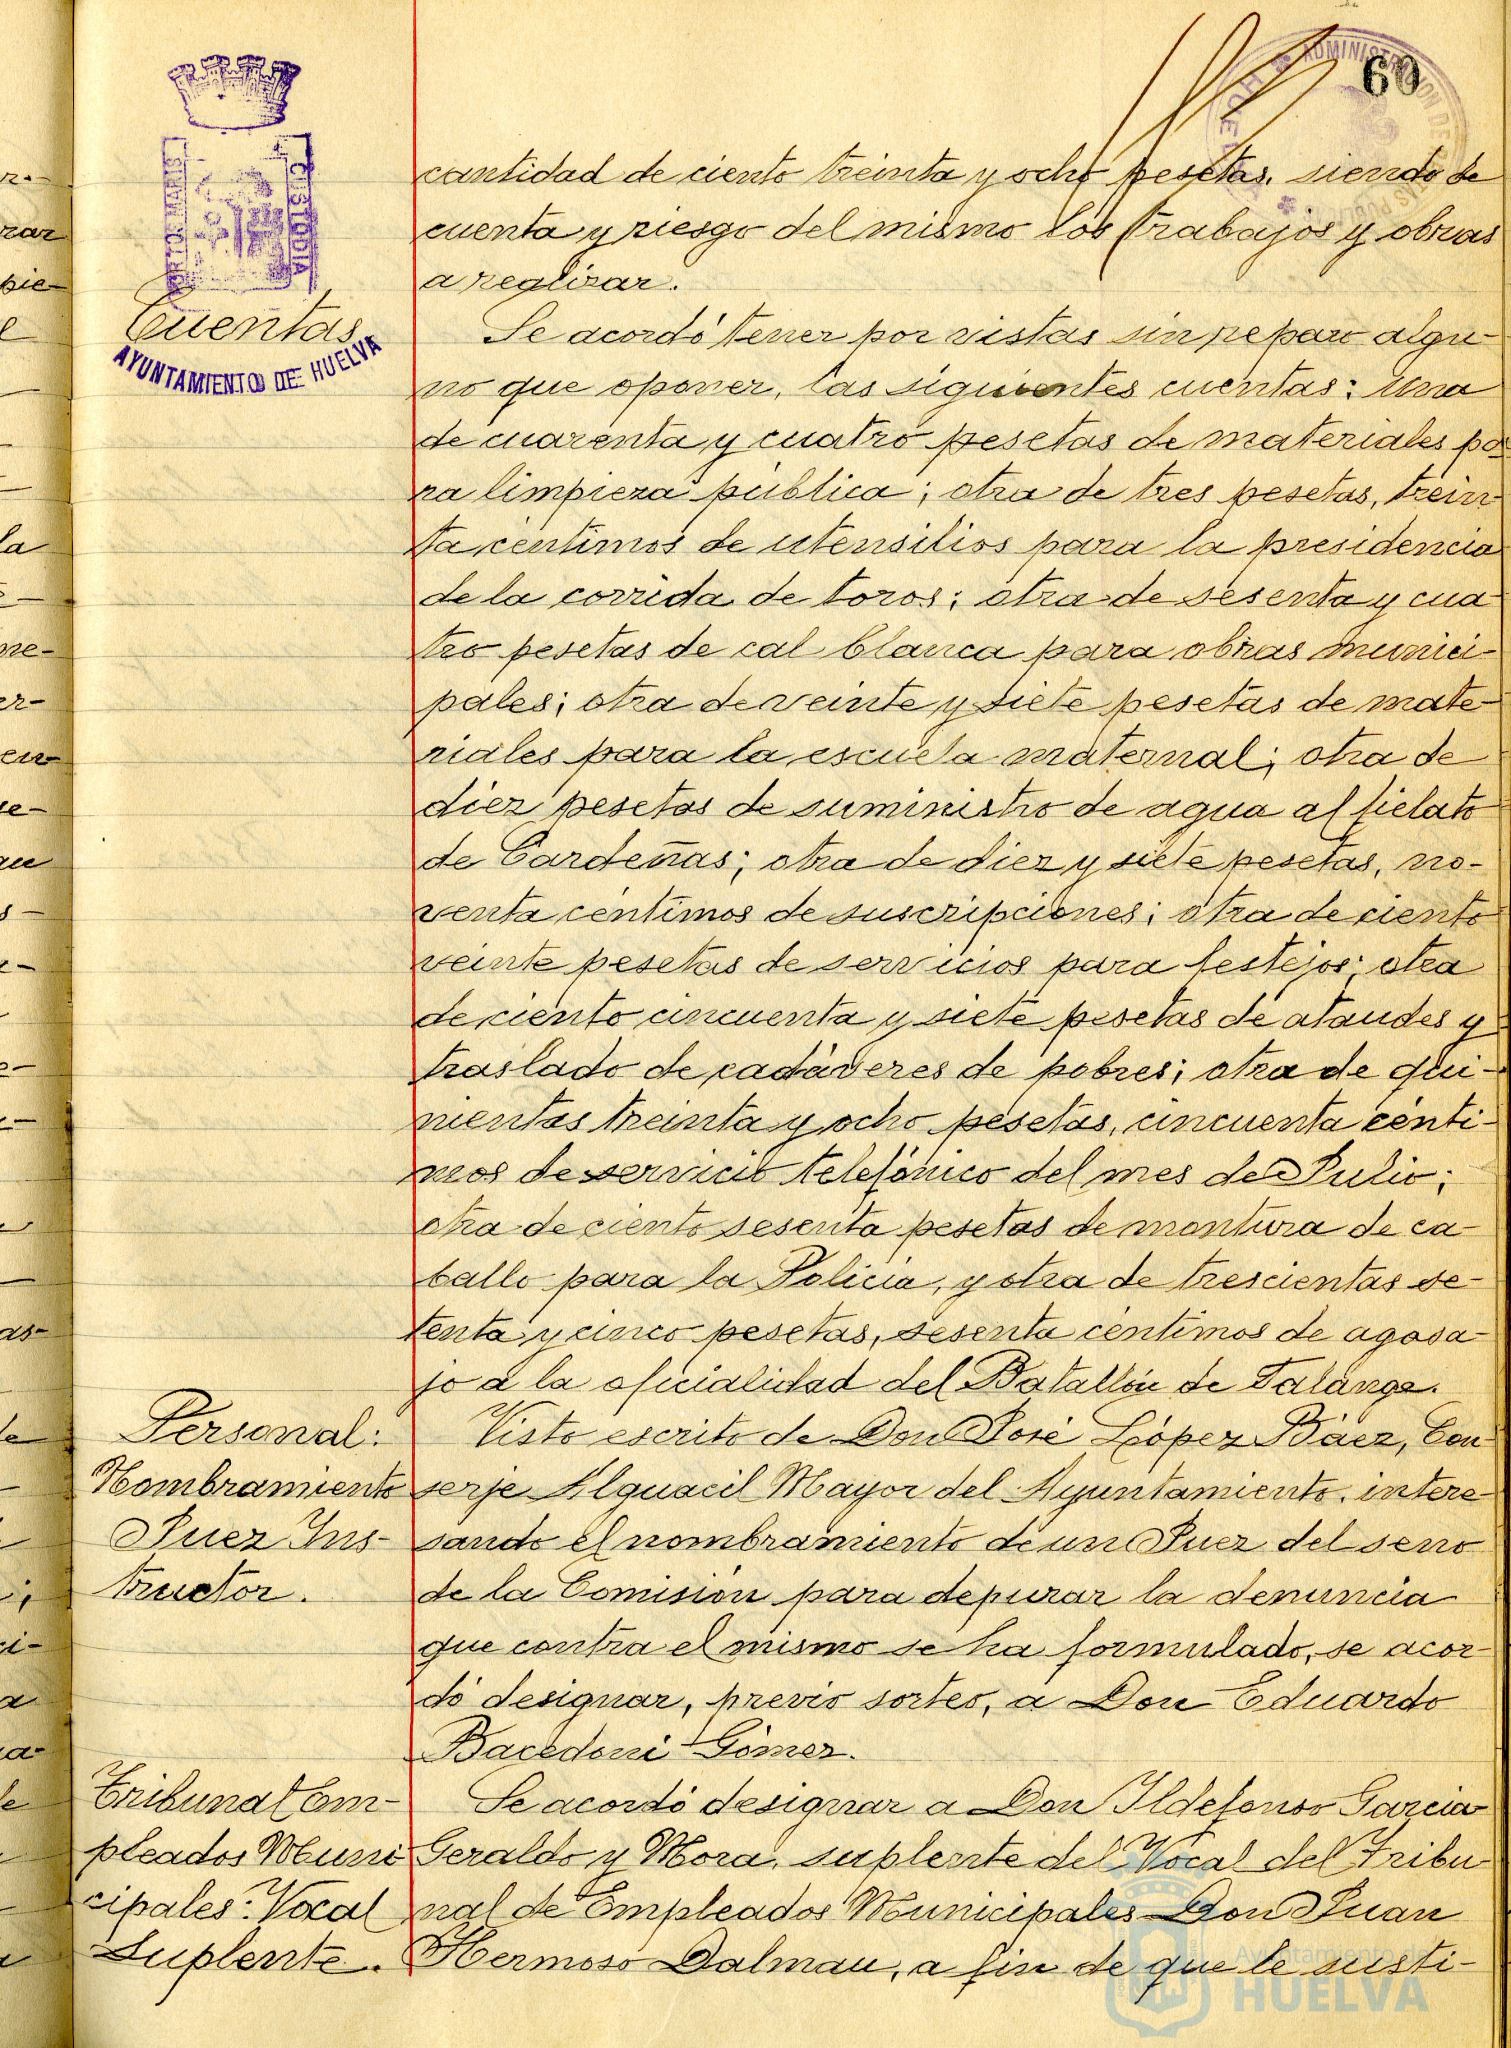 60
ADMINISTRACION DE
HUELVA
PORTO MARIS
CUSTODIA
AYUNTAMIENTO DE HUELVA
cantidad de ciento treinta y ocho pesetas, siendo de
cuenta y riesgo del mismo los trabajos y obras
a realizar.
Cuentas
Se acordó tener por vistas sin reparo algu-
no que oponer, las siguientes cuentas: una
de cuarenta y cuatro pesetas de materiales pa
ra limpieza pública; otra de tres pesetas, trein
ta céntimos de utensilios para la presidencia
de la corrida de toros; otra de sesenta y cua
tro pesetas de cal blanca para obras munici-
pales; otra de veinte y siete pesetas de mate-
riales para la escuela maternal; otra de
diez pesetas de suministro de agua al fielato
de Cardeñas; otra de diez y siete pesetas, no-
venta céntimos de suscripciones; otra de ciento
veinte pesetas de servicios para festejos; otra
de ciento cincuenta y siete pesetas de ataudes y
traslado de cadáveres de pobres; otra de qui-
nientas treinta y ocho pesetas, cincuenta cénti-
mos de servicio telefónico del mes de Julio;
otra de ciento sesenta pesetas de montura de ca-
ballo para la Policia, y otra de trescientas se-
tenta y cinco pesetas, sesenta céntimos de agasa-
jo a la oficialidad del Batallón de Talarga.
Personal:
Nombramiento
Juez Ins-
tructor.
Visto escrito de Don José López Báez, Con
serje Alguacil Mayor del Ayuntamiento, intere-
sando el nombramiento de un Juez del seno
de la Comisión para depurar la denuncia
que contra el mismo se ha formulado, se acor-
dó designar, previo sorteo, a Don Eduardo
Bacedoni Gómez.
Tribunal Em-
pleados Muni
cipales: Vocal
Suplente.
Se acordó designar a Don Ildefonso Garcia
Geraldo y Mora, suplente del Vocal del Tribu-
nal de Empleados Municipales Don Juan
Hermoso Dalmau, a fin de que le susti-
Ayuntamiento de
HUELVA